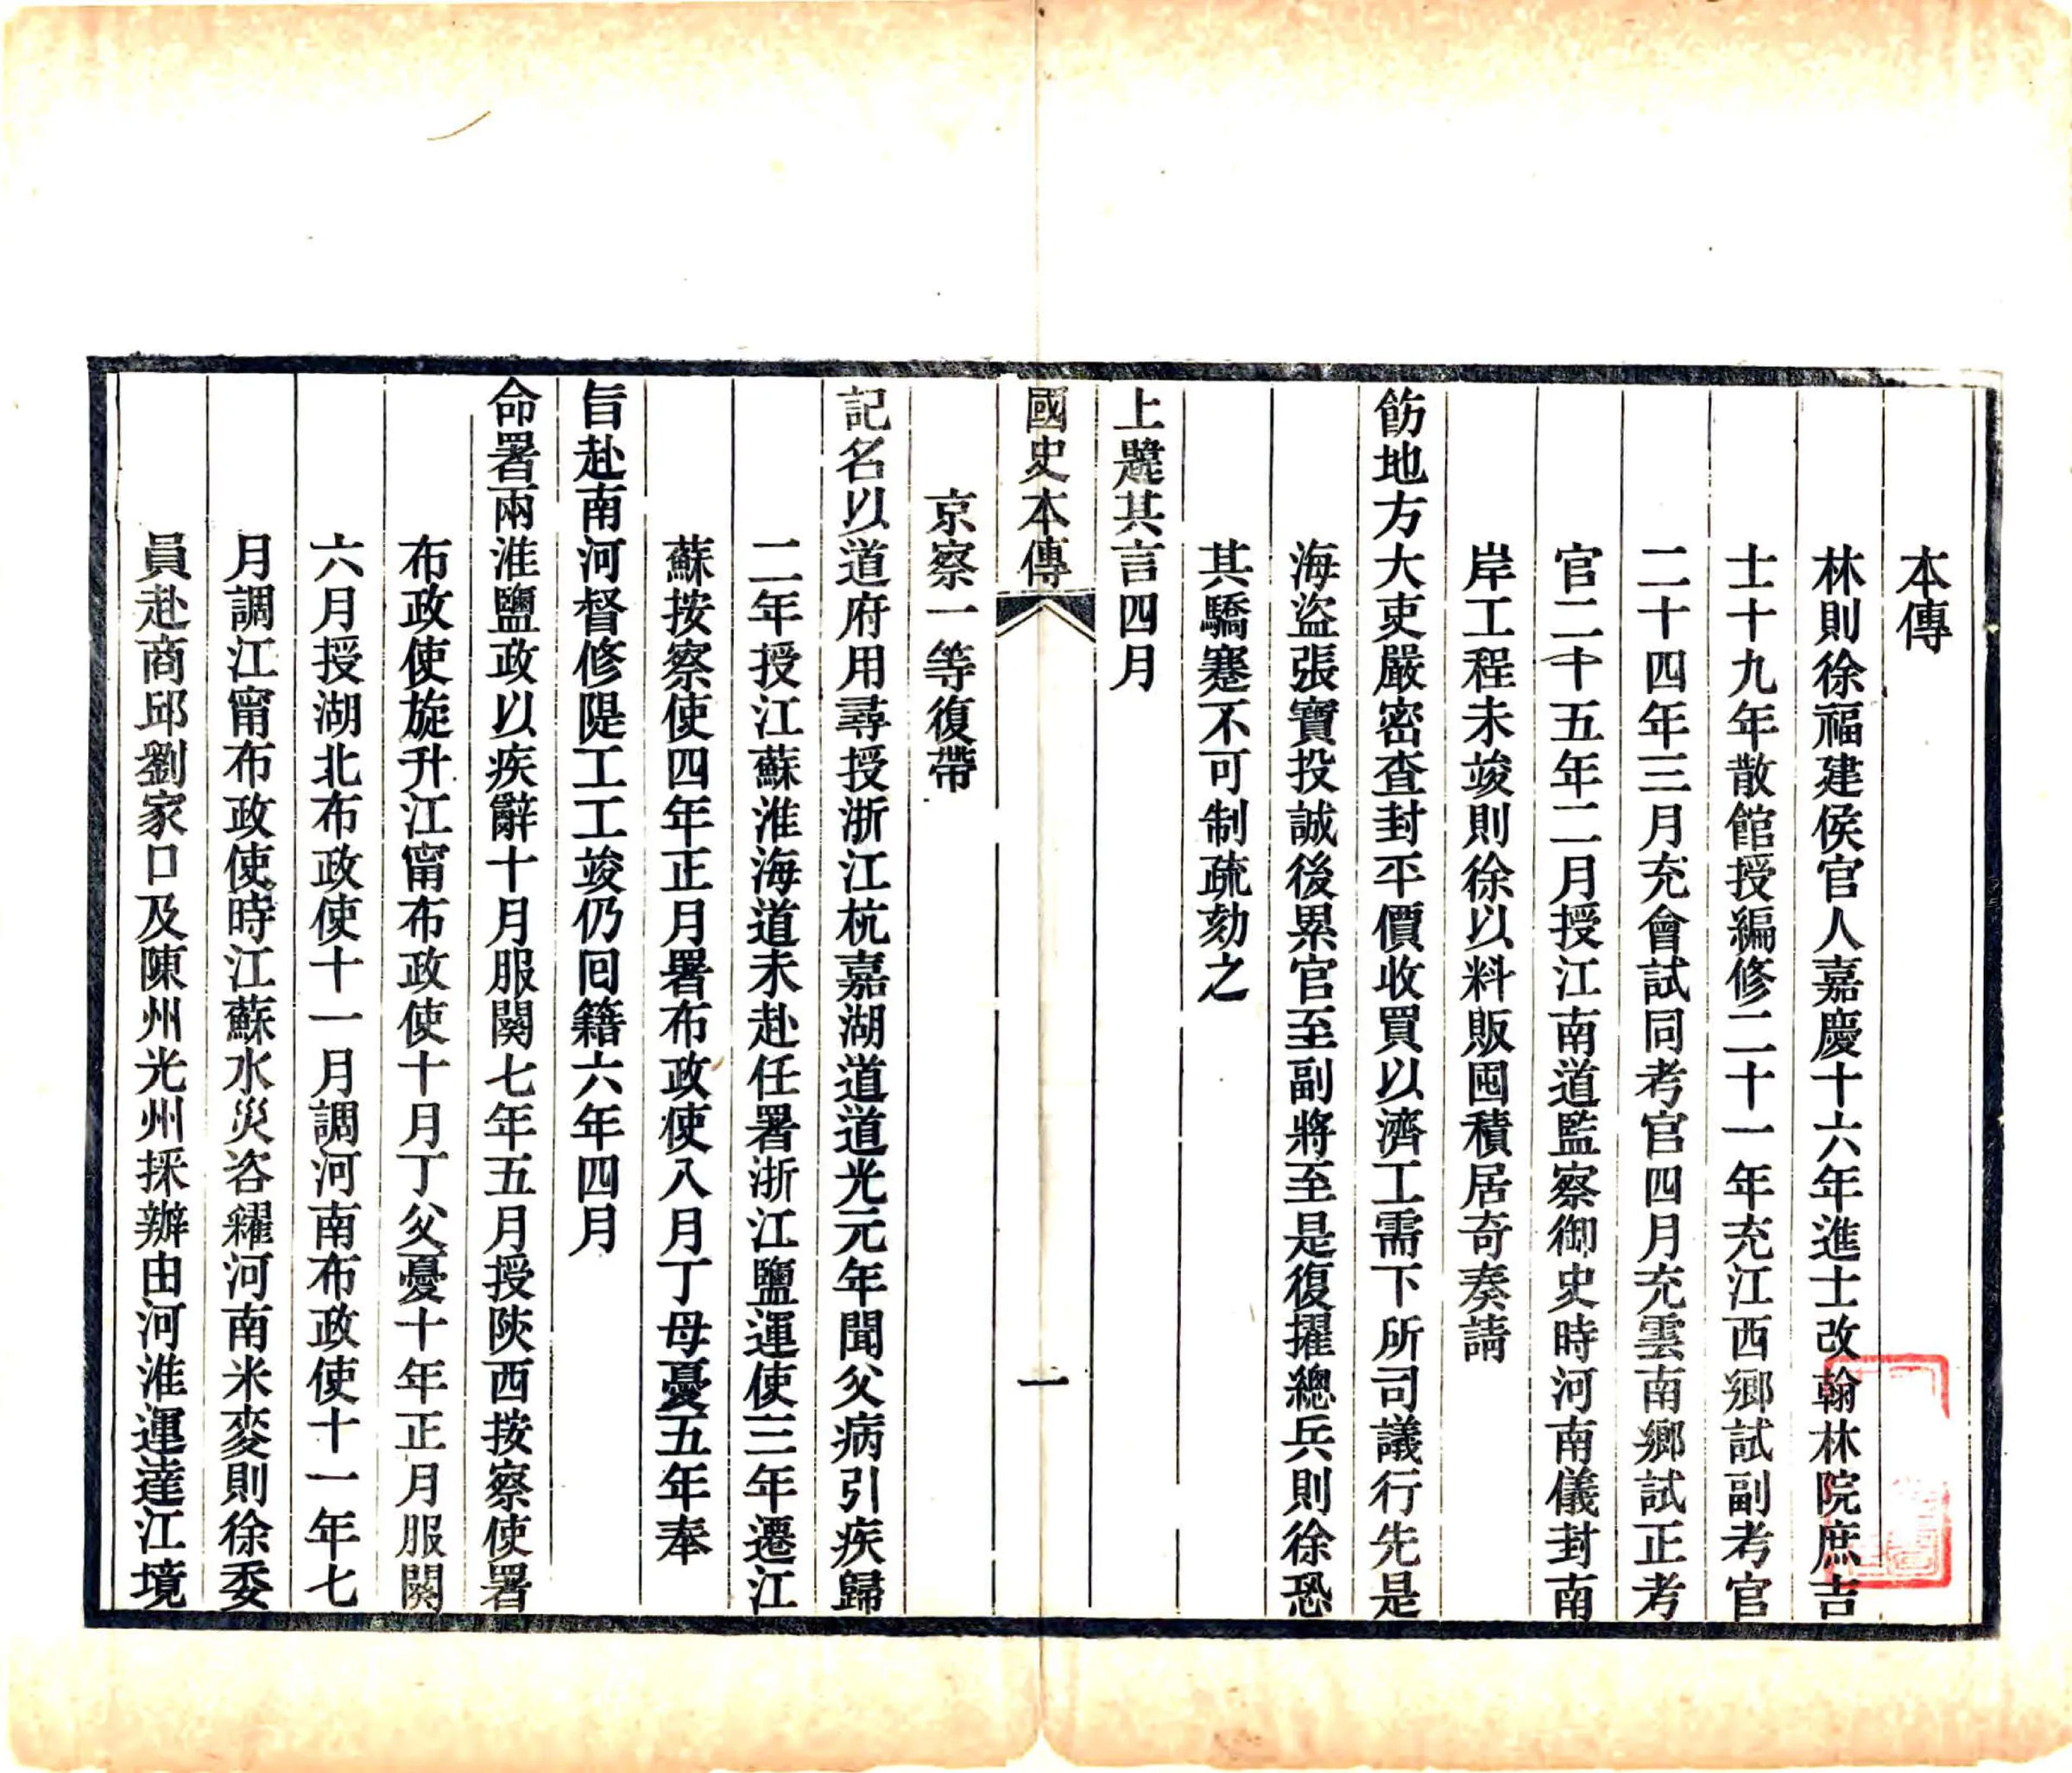 本傳
林則徐福建侯官人嘉慶十六年進士改翰林院庶吉
士十九年散館授編修二十一年充江西鄉試副考官
二十四年三月充會試同考官四月充雲南鄉試正考
官二十五年二月授江南道監察御史時河南儀封南
岸工程未竣則徐以料販囤積居奇奏請
飭地方大吏嚴密查封平價收買以濟工需下所司議行先是
海盜張寶投誠後累官至副將至是復擢總兵則徐恐
其驕蹇不可制疏劾之
上韙其言四月
國史本傳
一
京察一等復帶
記名以道府用尋授浙江杭嘉湖道道光元年聞父病引疾歸
二年授江蘇淮海道未赴任署浙江鹽運使三年遷江
蘇按察使四年正月署布政使八月丁母憂五年奉
旨赴南河督修隄工工竣仍囘籍六年四月
命署兩淮鹽政以疾辭十月服闋七年五月授陝西按察使署
布政使旋升江甯布政使十月丁父憂十年正月服闋
六月授湖北布政使十一月調河南布政使十一年七
月調江甯布政使時江蘇水災咨糴河南米麥則徐委
員赴商邱劉家口及陳州光州採辦由河淮運達江境